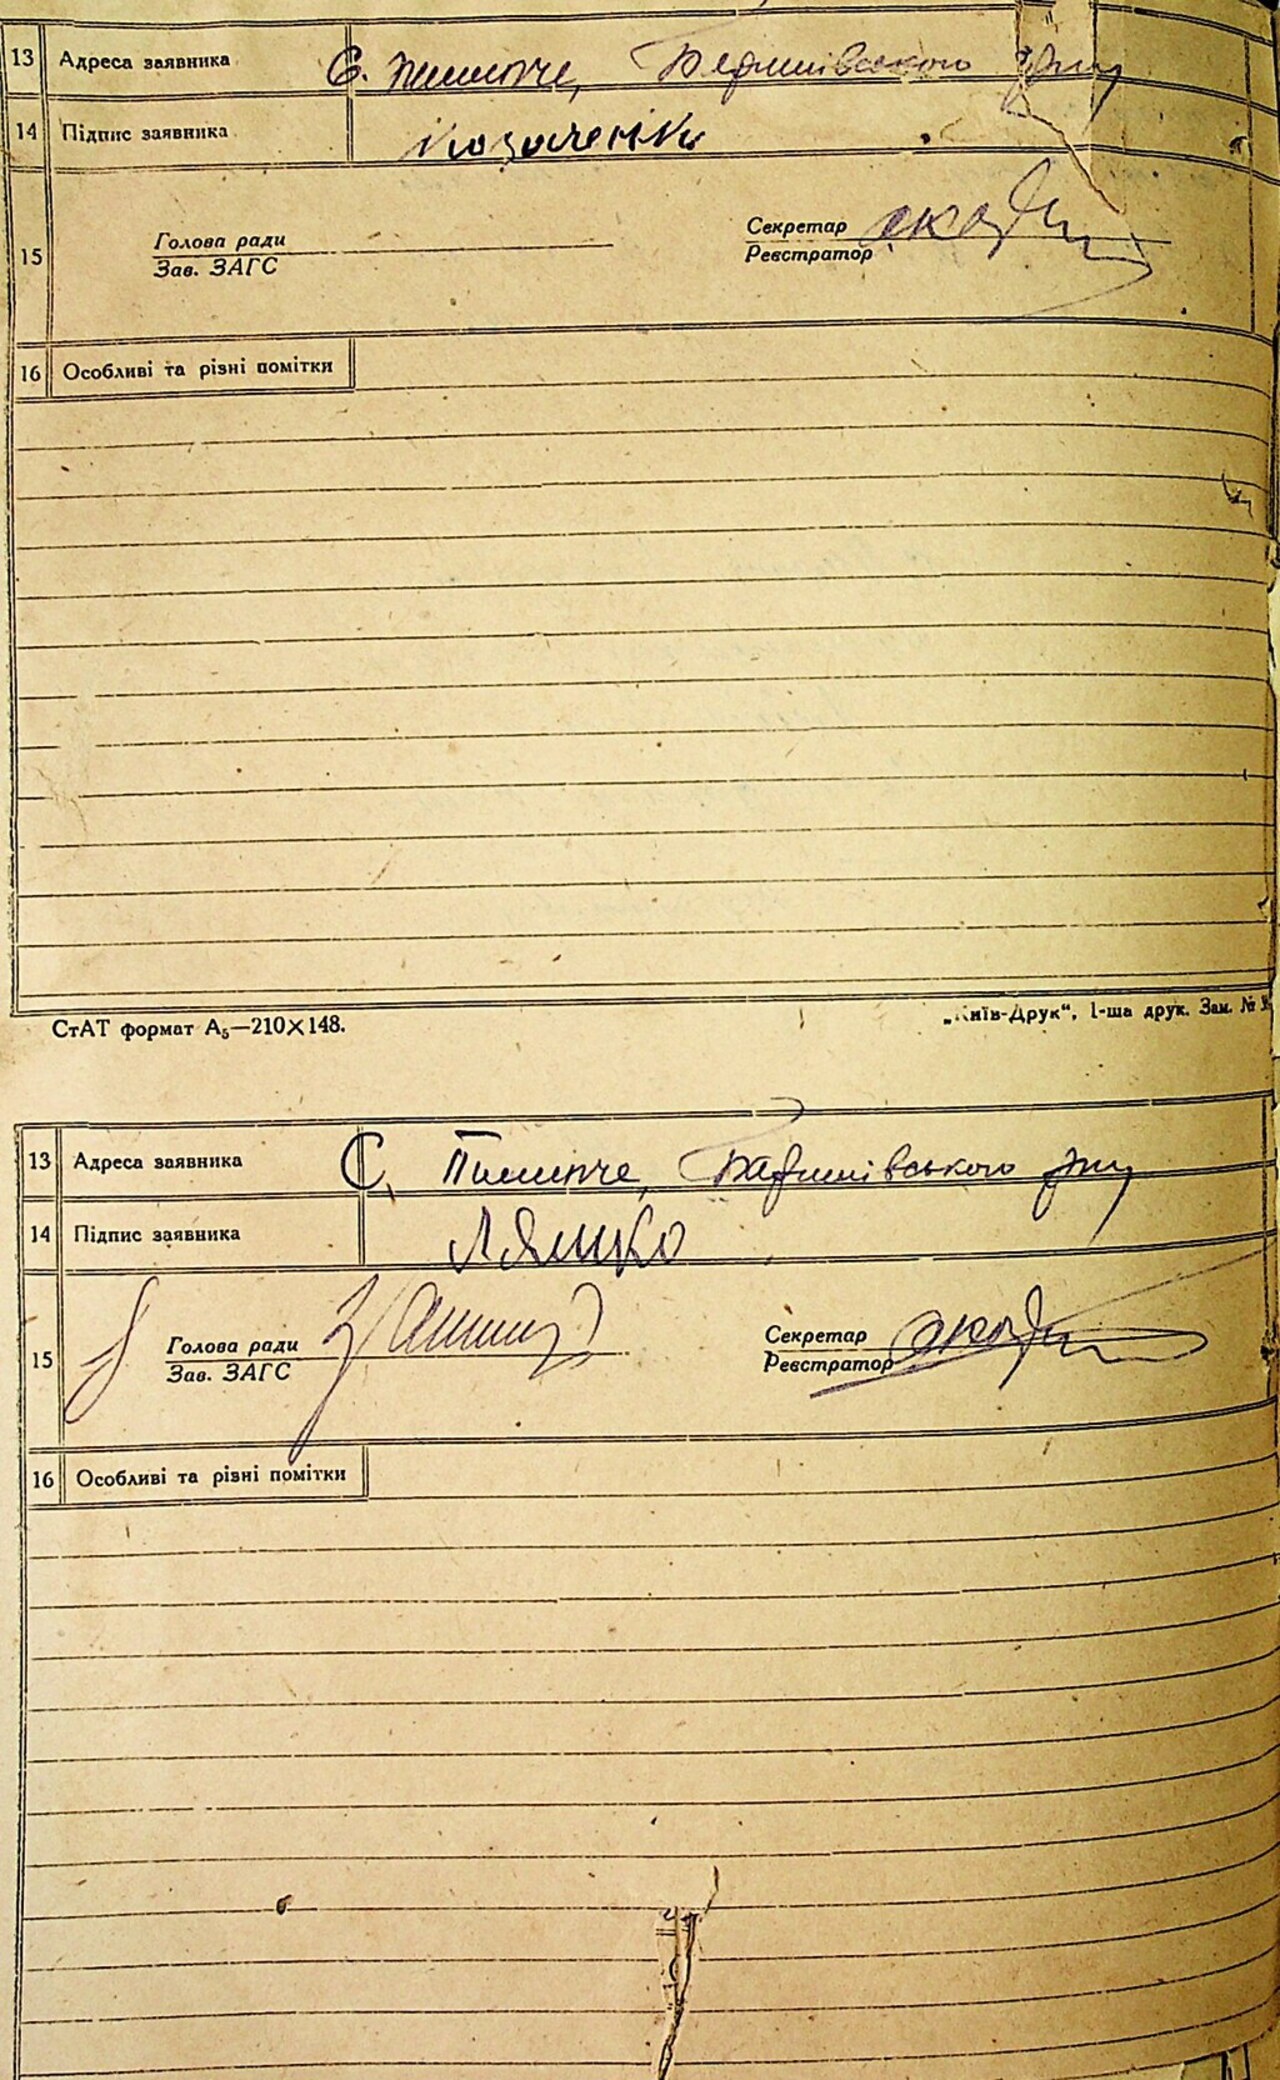 13 Адреса заявника С. Пилипче, Баришівського р-ну
14 Підпис заявника Козаченко
15 Голова ради Секретар
Зав. ЗАГС Реєстратор
16 Особливі та різні помітки
СтАТ формат А₅—210×148. „Київ-Друк“, 1-ша друк. Зам. №
13 Адреса заявника С. Пилипче, Баришівського р-ну
14 Підпис заявника Ляшко
15 Голова ради Секретар
Зав. ЗАГС Реєстратор
16 Особливі та різні помітки